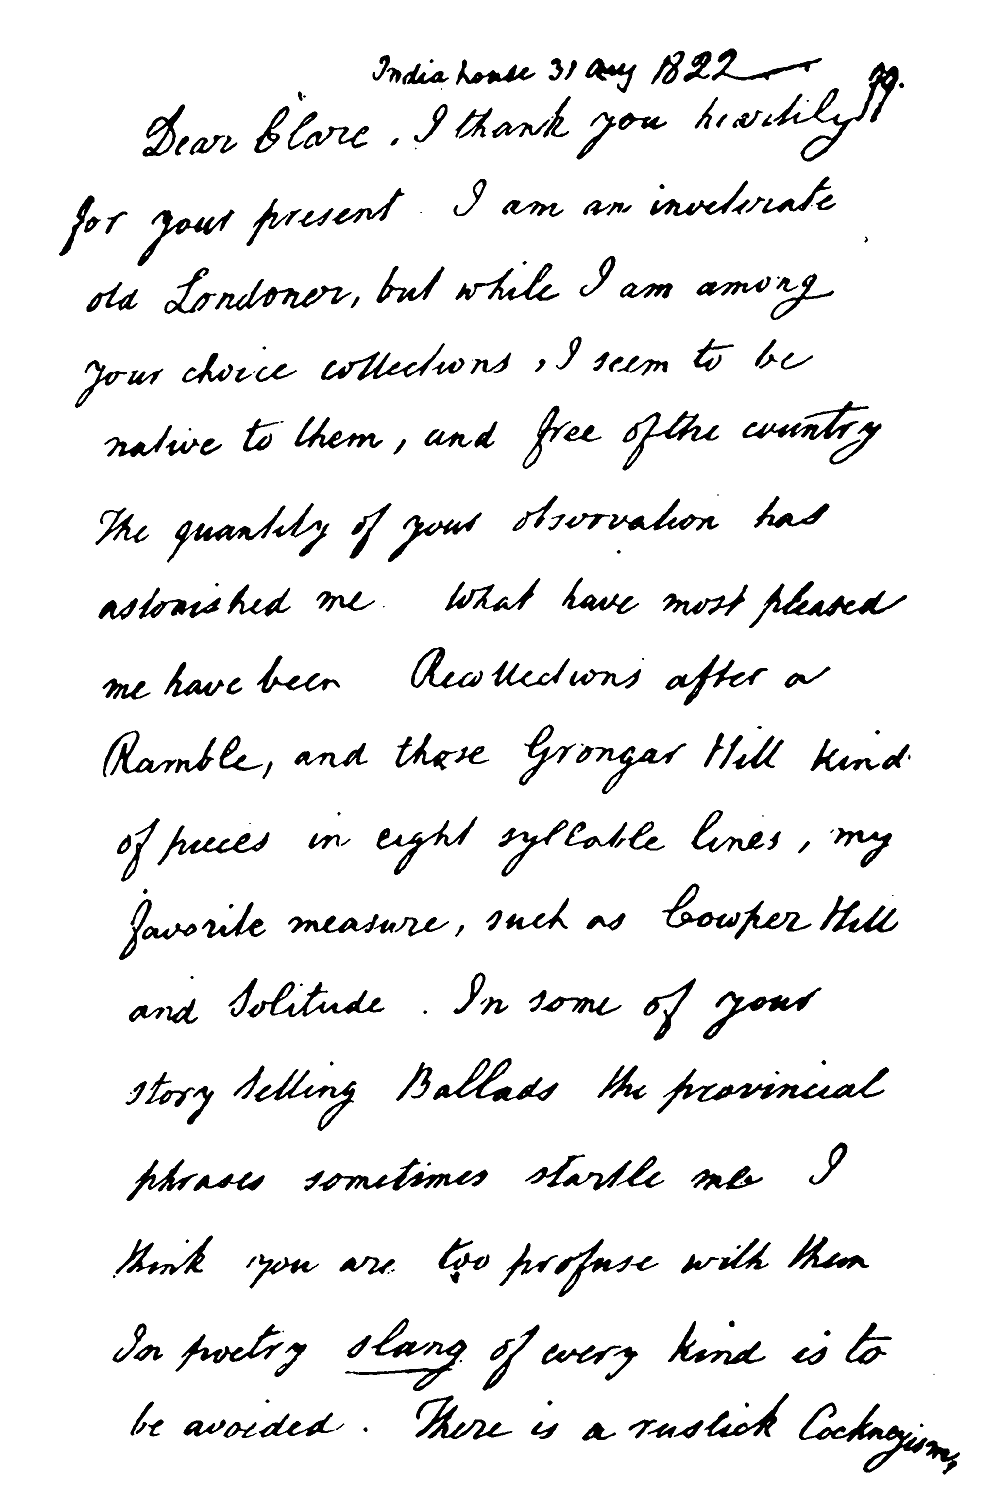 India house 31 Aug 1822
Dear Clare. I thank you heartily
for your present. I am an inveterate
old Londoner, but while I am among
your choice collections, I seem to be
native to them, and free of the country
The quantity of your observation has
astonished me. What have most pleased
me have been Recollections after a
Ramble, and those Grongar Hill kind
of pieces in eight syllable lines, my
favorite measure, such as Cowper Hill
and Solitude. In some of your
story telling Ballads the provincial
phrases sometimes startle me I
think you are too profuse with them
In poetry slang of every kind is to
be avoided. There is a rustick Cockneyism,